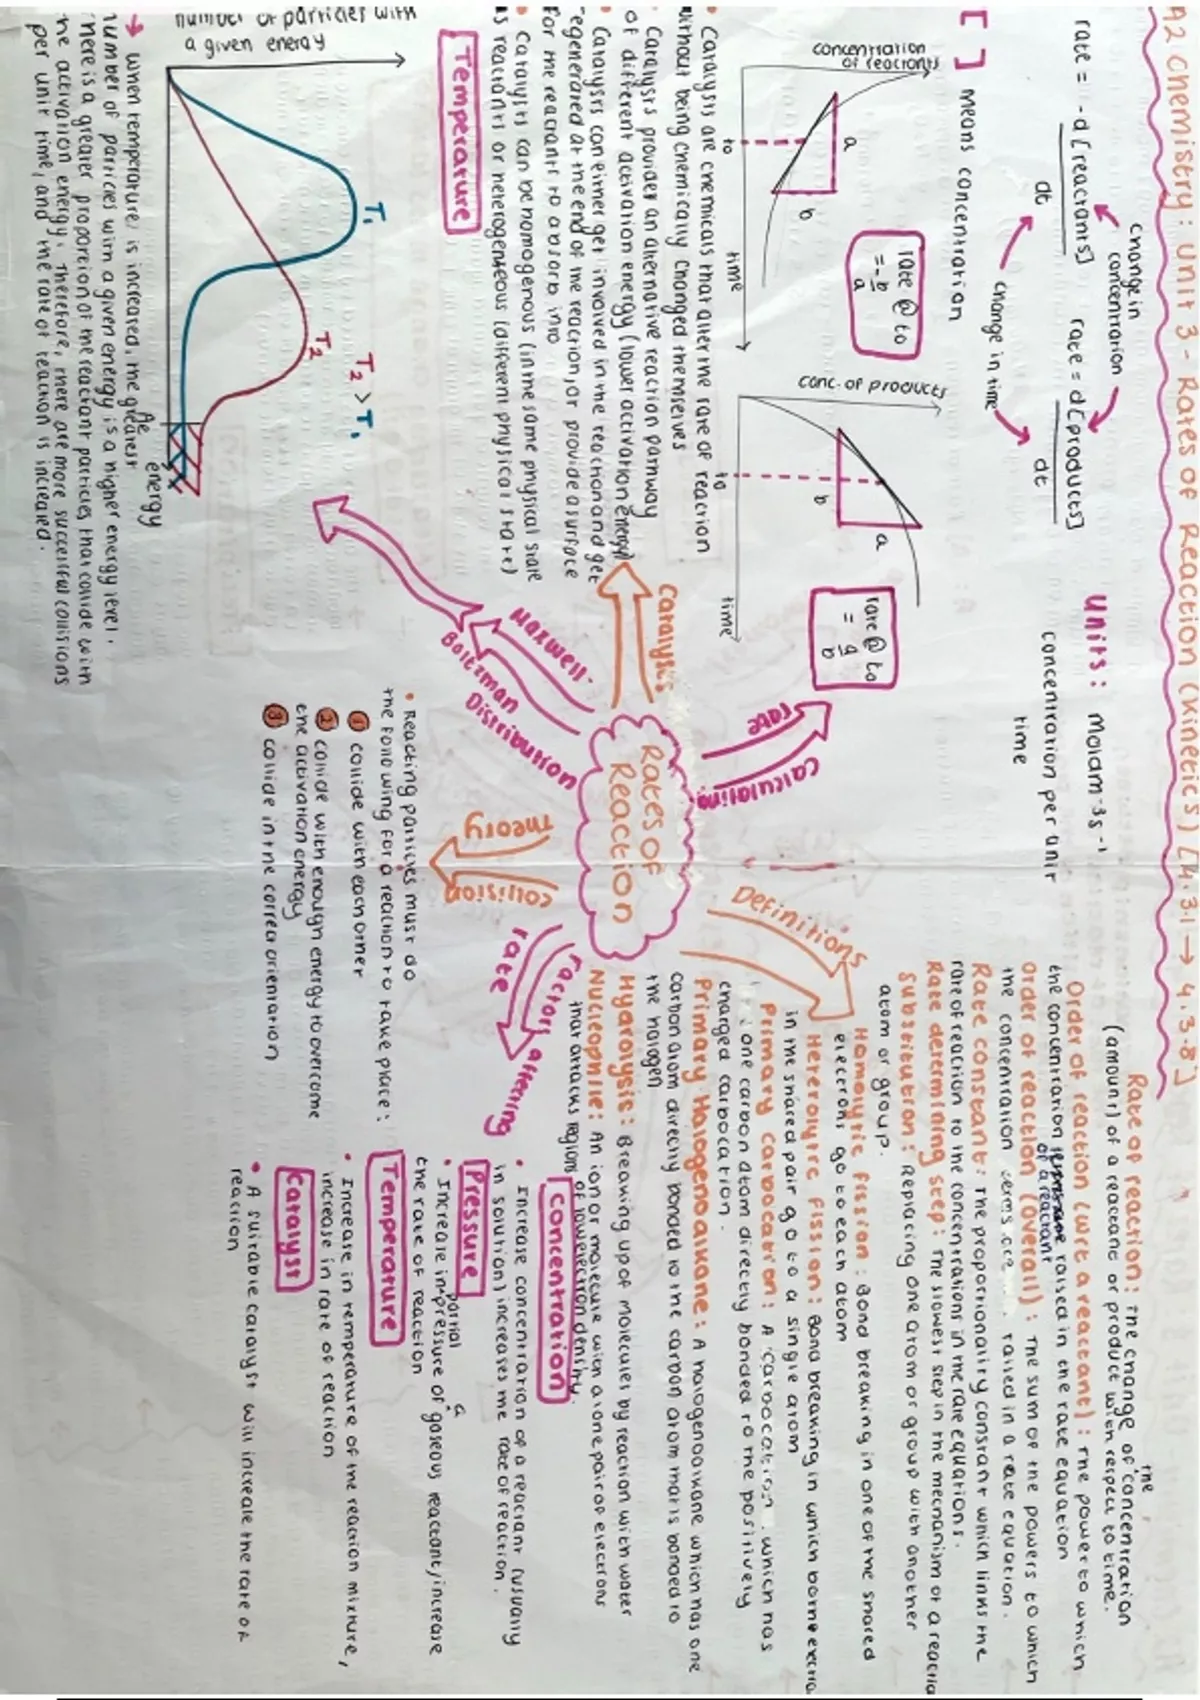 A2 Chemistry: Unit 3 - Rates of Reaction (Kinetics) [4.3.1 → 4.3.8]
rate = -d[reactants]
dt
change in
concentration
change in time
rate = d[products]
dt
[ ] means concentration
units: moldm⁻³s⁻¹
concentration per unit
time
concentration
of reactants
a
b
to
time
rate @ to
= -b
a
conc. of products
a
b
to
time
rate @ to
= a
b
calculating
rate
Rates of
Reaction
Catalysts
• Catalysts are chemicals that alter the rate of reaction
without being chemically changed themselves
• Catalysts provide an alternative reaction pathway
of different activation energy (lower activation energy)
• Catalysts can either get involved in the reaction and get
regenerated at the end of the reaction, or provide a surface
for the reactants to adsorb into
• Catalysts can be homogenous (in the same physical state
as reactants or heterogeneous (different physical state)
Maxwell-
Boltzman
Distribution
Temperature
number of particles with
a given energy
T₁
T₂
T₂ > T₁
Ae
energy
→ when temperature is increased, the greatest
number of particles with a given energy is a higher energy level.
There is a greater proportion of the reactant particles that collide with
the activation energy. Therefore, there are more successful collisions
per unit time, and the rate of reaction is increased.
collision
Theory
• Reacting particles must do
the following for a reaction to take place:
① collide with each other
② collide with enough energy to overcome
the activation energy
③ collide in the correct orientation
Definitions
Rate of reaction: the change of the concentration
(amount) of a reactant or product with respect to time.
Order of reaction (wrt a reactant): the power to which
the concentration of a reactant raised in the rate equation
Order of reaction (overall): The sum of the powers to which
the concentration terms are raised in a rate equation.
Rate constant: The proportionality constant which links the
rate of reaction to the concentrations in the rate equations.
Rate determining step: The slowest step in the mechanism of a reactio
Substitution: Replacing one atom or group with another
atom or group.
Homolytic fission: Bond breaking in one of the shared
electrons go to each atom
Heterolytic fission: Bond breaking in which both electro
in the shared pair go to a single atom
Primary carbocation: A carbocation which has
one carbon atom directly bonded to the positively
charged carbocation.
Primary Halogenoalkane: A halogenoalkane which has one
carbon atom directly bonded to the carbon atom that is bonded to
the halogen
Hydrolysis: Breaking up of molecules by reaction with water
Nucleophile: An ion or molecule with a lone pair of electrons
that attacks regions of low electron density.
Factors affecting
rate
Concentration
• Increase concentration of a reactant (usually
in solution) increases the rate of reaction.
Pressure
• Increase in partial pressure of a gaseous reactant, increase
the rate of reaction
Temperature
• Increase in temperature of the reaction mixture,
increase in rate of reaction
Catalyst
• A suitable catalyst will increase the rate of
reaction